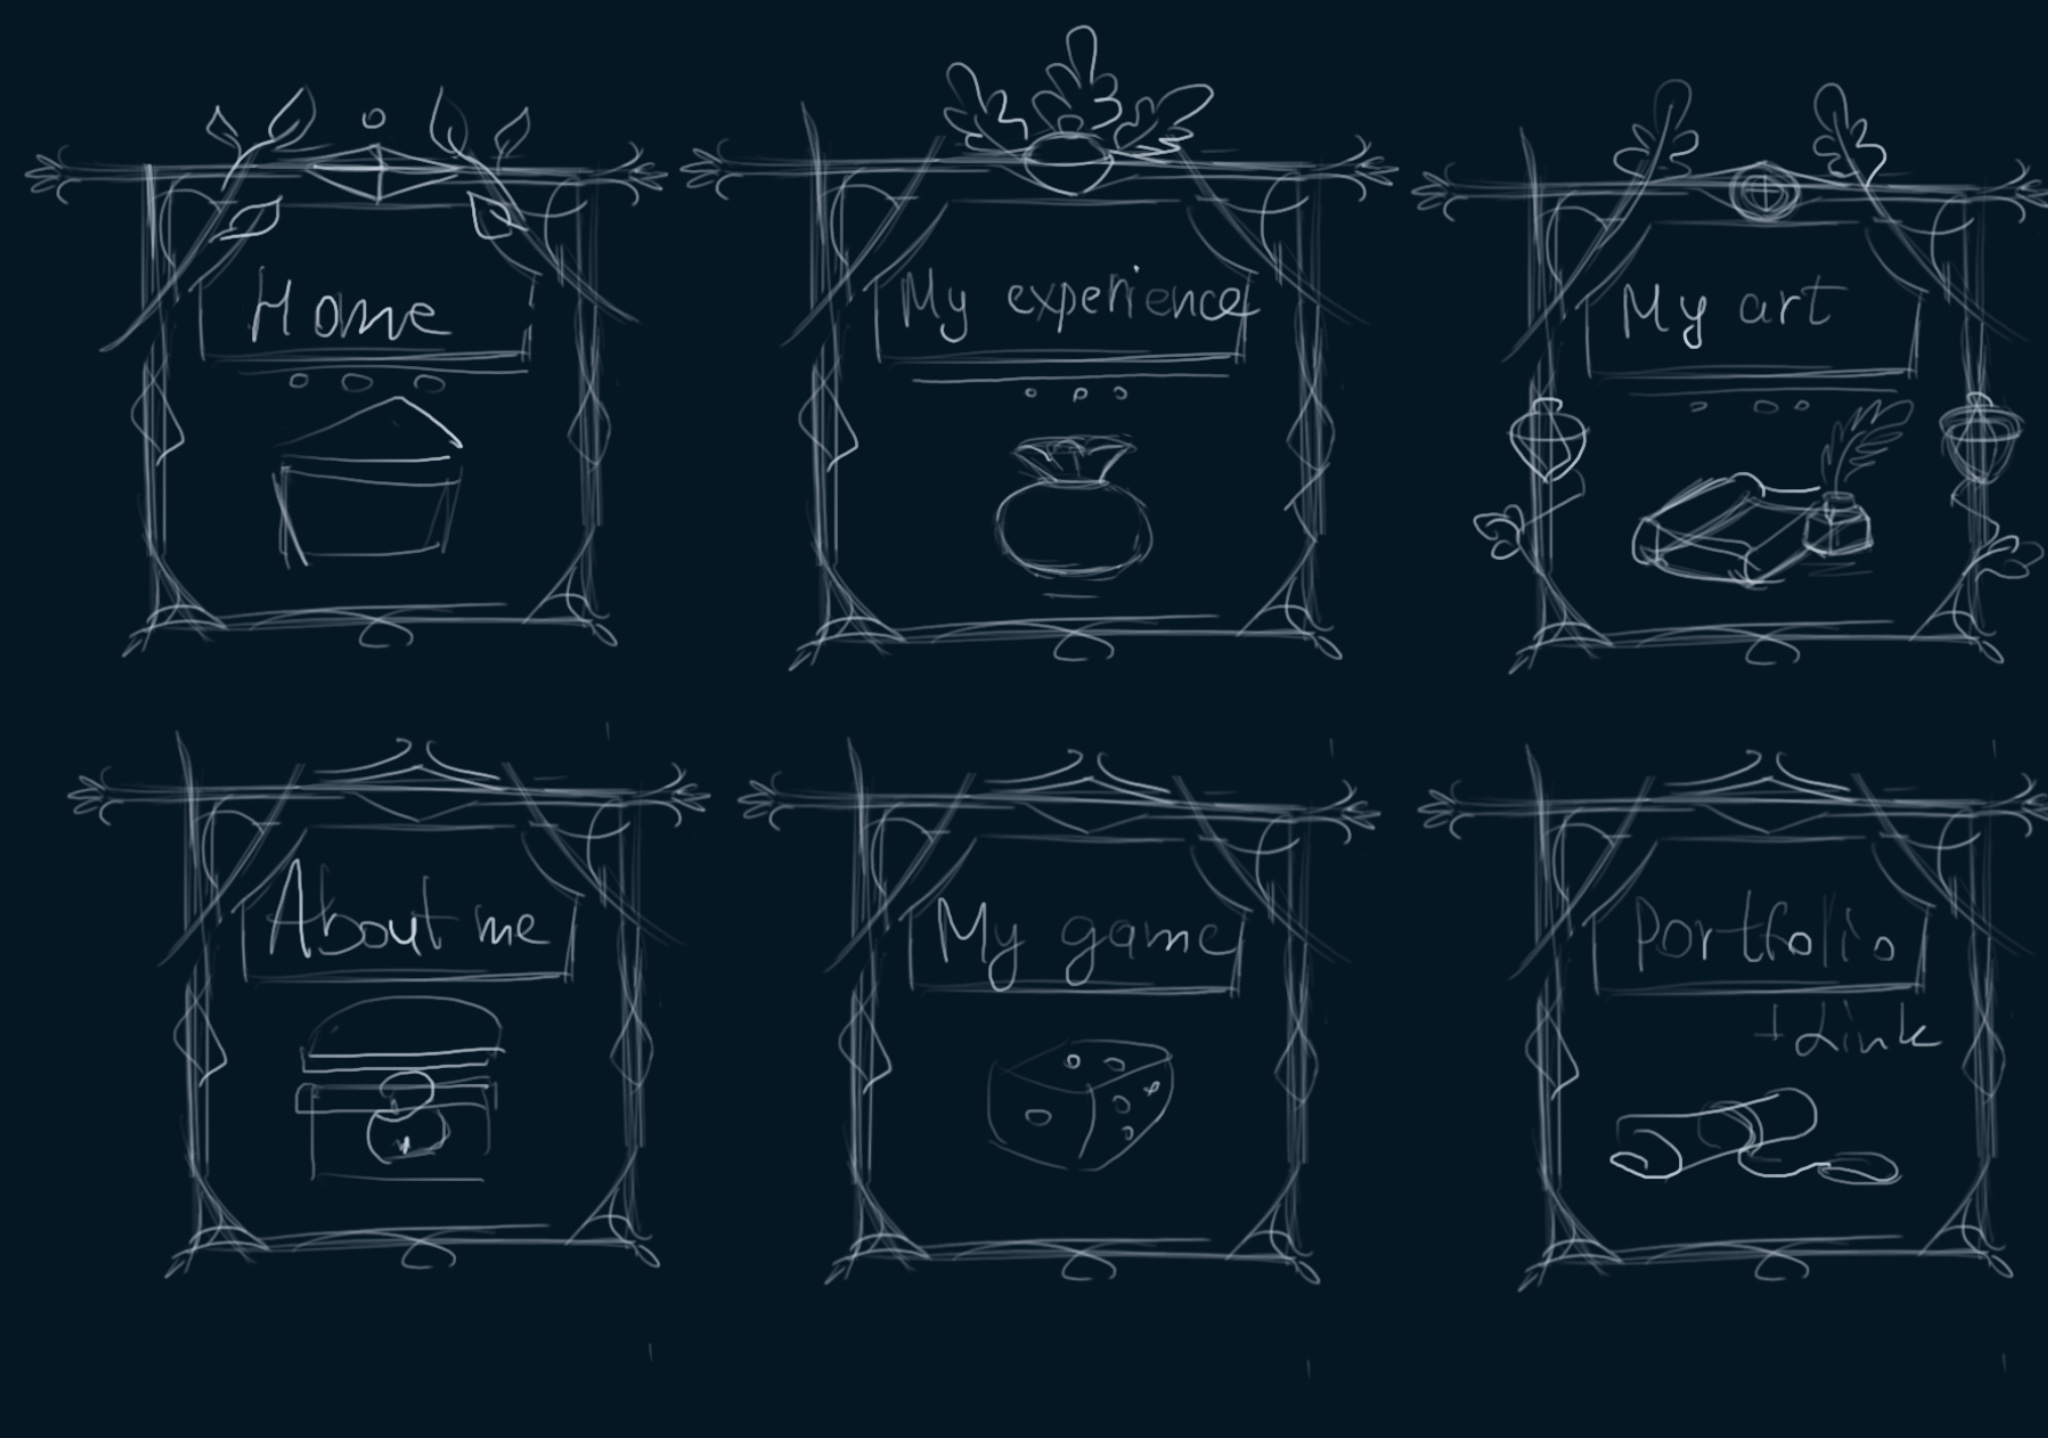 Home
My experience
My art
About me
My game
Portfolio
+ Link